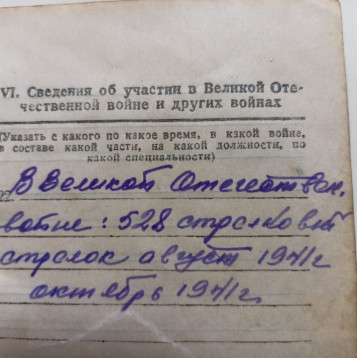 VI. Сведения об участии в Великой Оте-
чественной войне и других войнах
(Указать с какого по какое время, в какой войне,
в составе какой части, на какой должности, по
какой специальности)
В Великой Отечествен.
войне: 528 стрелковый
стрелок август 1941г
октябрь 1941г.